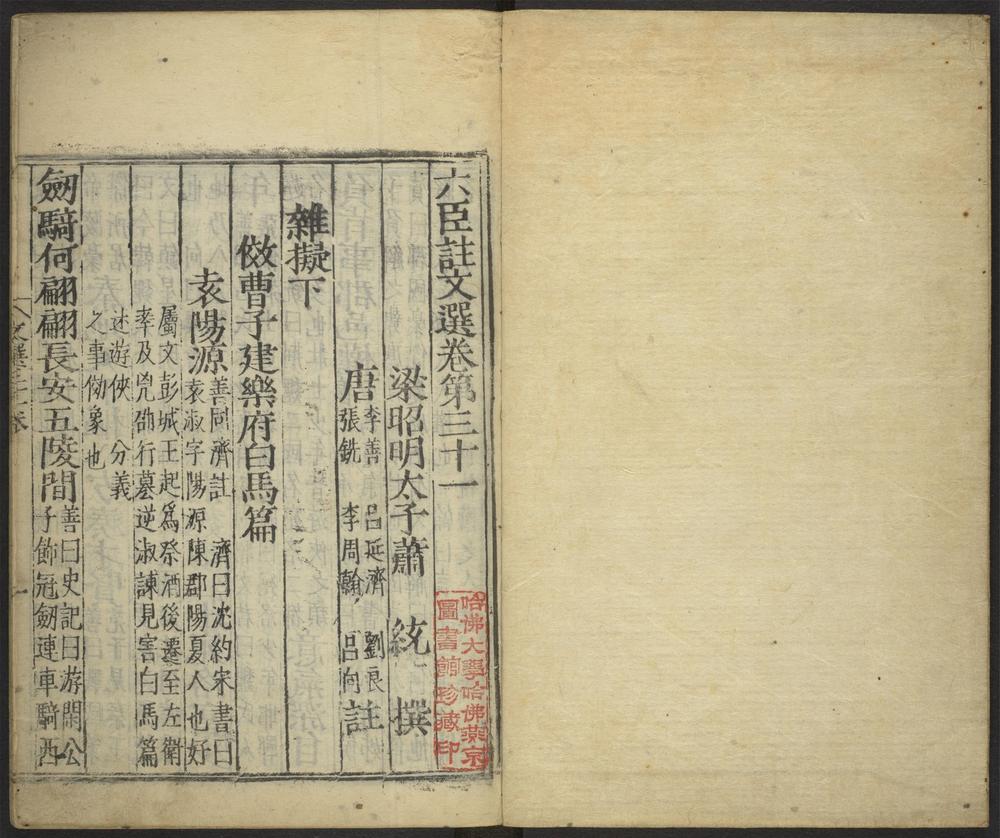 六臣註文選卷第三十一
梁昭明太子蕭 統 撰
唐 李善 呂延濟 劉良
張銑 李周翰 呂向 註
雜擬下
倣曹子建樂府白馬篇
袁陽源 善同濟註 濟曰沈約宋書曰
袁淑字陽源陳郡陽夏人也好
屬文彭城王起爲祭酒後遷至左衛
率及兇劭行墓逆淑諫見害白馬篇
述游俠 分義
之事倣象也
劒騎何翩翩長安五陵間 善曰史記曰游閑公
子飾冠劒連車騎西
哈佛大學哈佛燕京
圖書館珍藏印